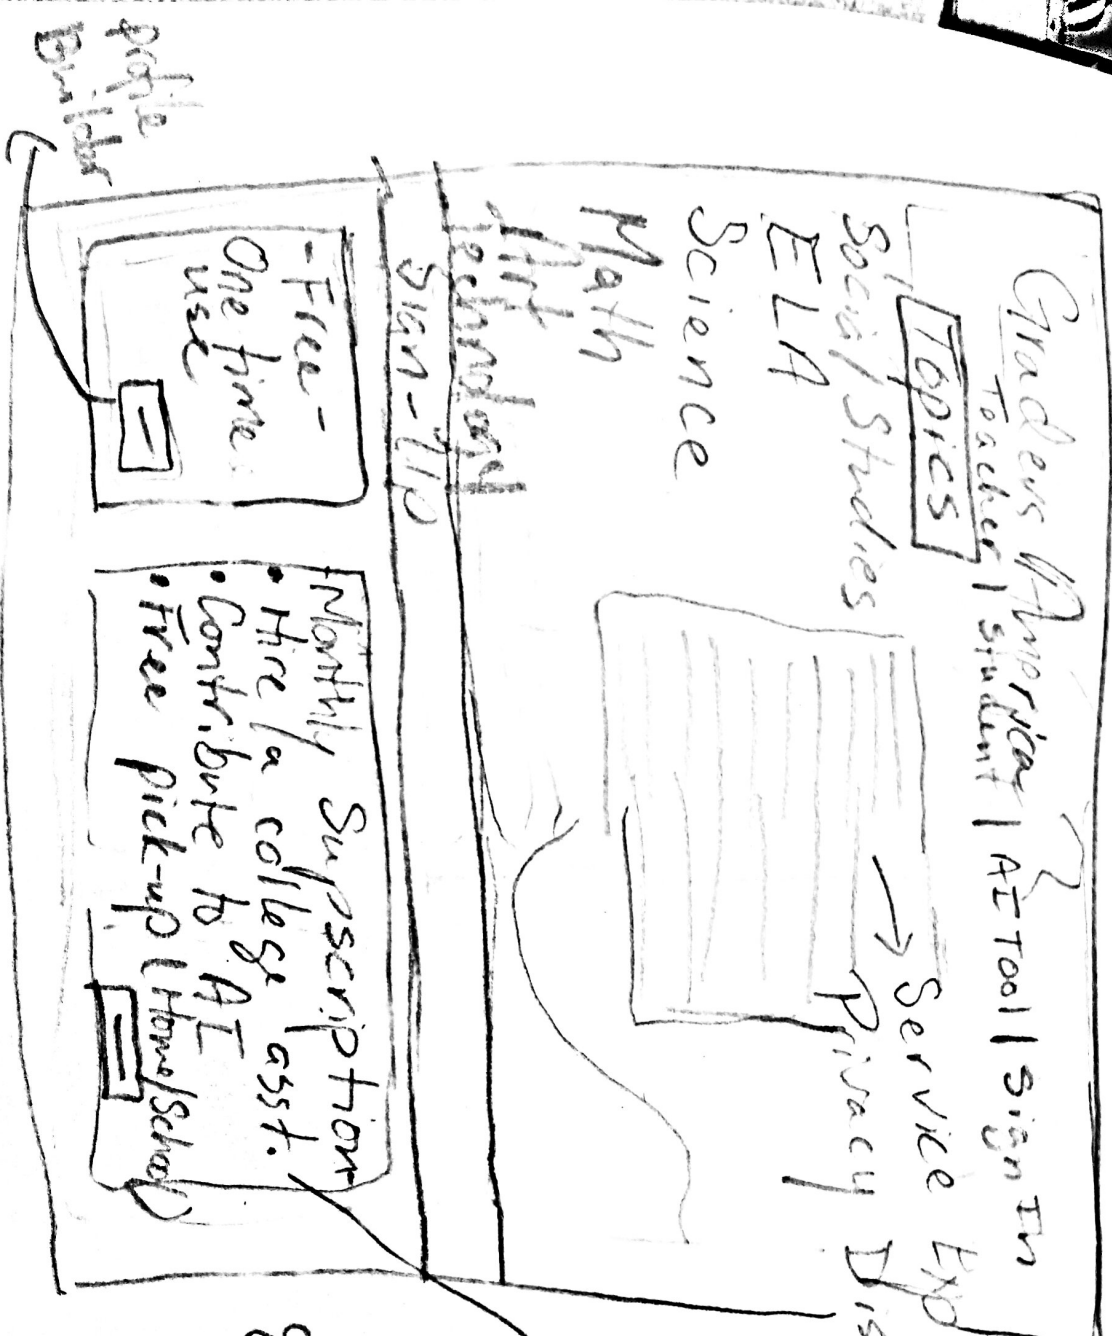 Graders America
Teacher | Student | AI Tool | Sign In
Topics
→ Service Exp
Social Studies
Privacy Dis
ELA
Science
Math
Art
Technology
Sign-Up
-Free-
One time
use
Monthly Supscription
• Hire/a college asst.
• Contribute to AI
• Free pick-up (Home/School)
profile
Builder